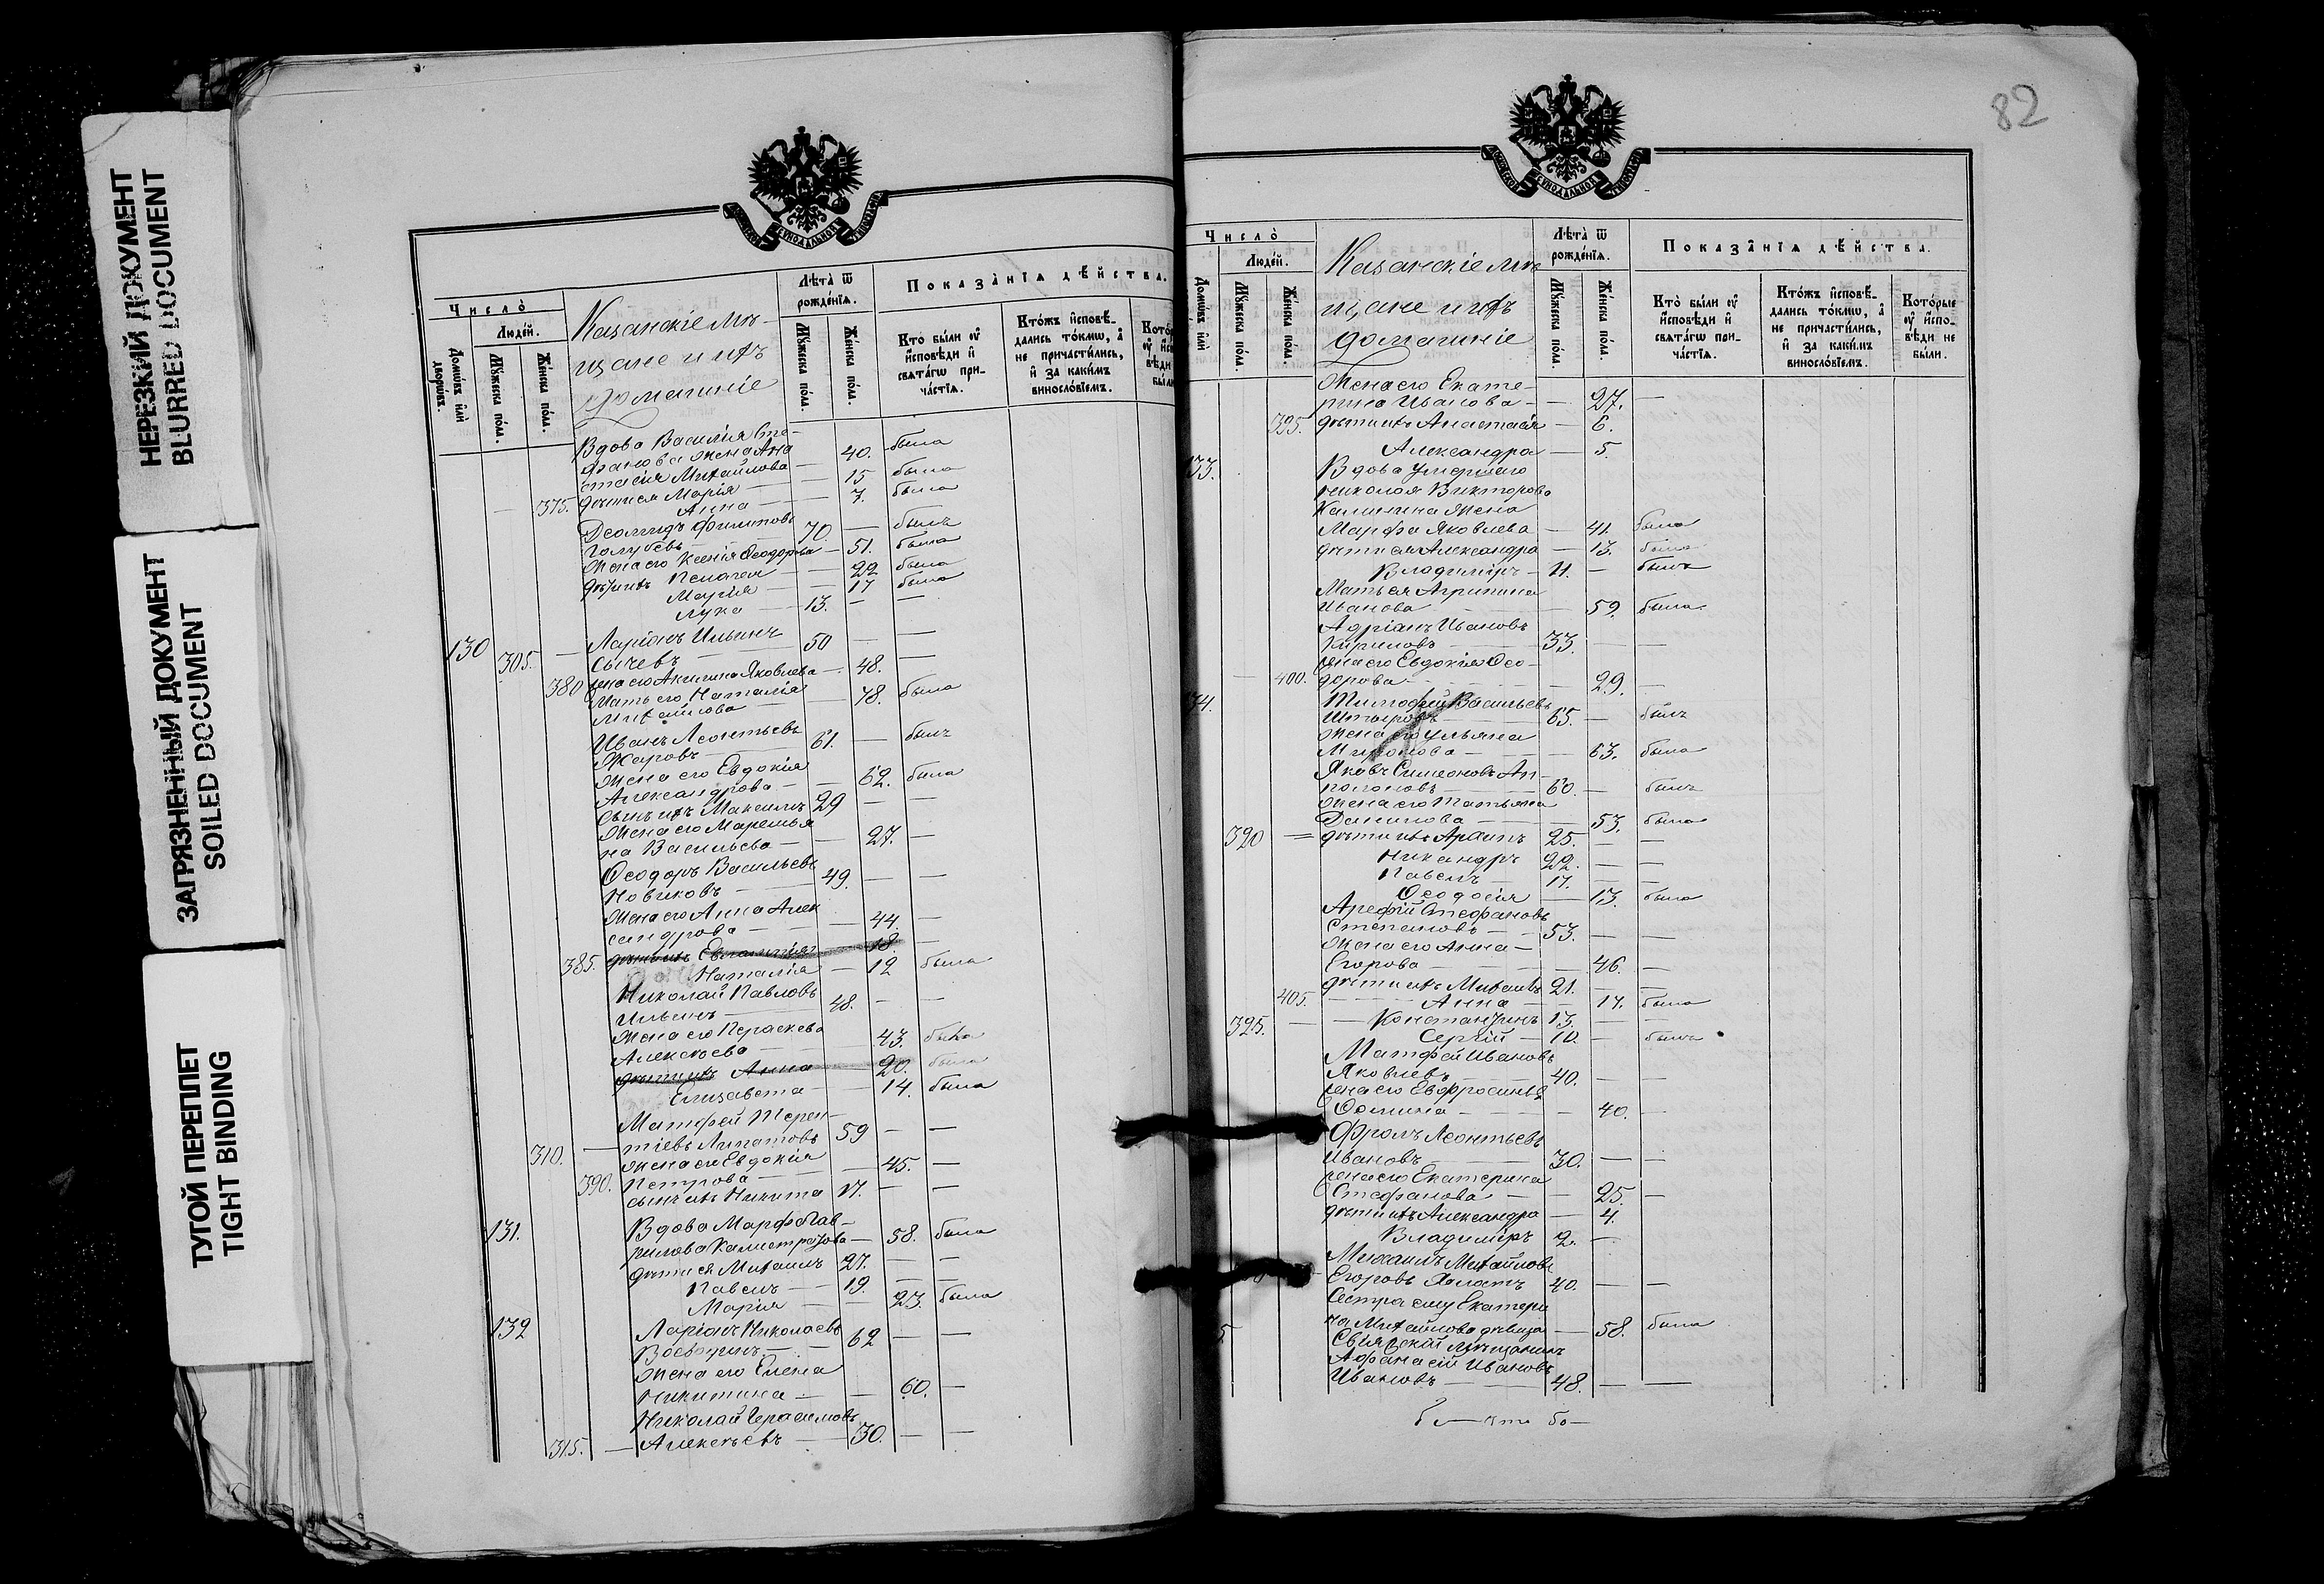 НЕРЕЗКИЙ ДОКУМЕНТ
BLURRED DOCUMENT
ЗАГРЯЗНЕННЫЙ ДОКУМЕНТ
SOILED DOCUMENT
ТУГОЙ ПЕРЕПЛЕТ
TIGHT BINDING
Число̀
Людей.
Домѡвъ илѝ дворѡвъ.
Мꙋжеска пола.
Женска пола.
Казанскіе мѣ-
щане и ихъ
домашніе
Лѣта̀ ѿ рожденїѧ.
Мꙋжеска пола.
Женска пола.
Показанїѧ дѣйства.
Кто̀ были оу҆ исповѣди и свѧтагѡ причастїѧ.
Ктожъ исповѣдались токмѡ, а не причастились, и за какимъ винословїемъ.
Вдова Василія Сте-
фанова жена Ана
стасія Михайлова — 40. была
375. дѣти ея Марія — 15 была
Анна — 7. была
Филиповъ
Голубевъ 70. — былъ
Жена его Ксенія Ѳеодорова — 51. была
дѣти ихъ Пелагея — 22 была
Марія — 17 была
Лука — 13. — —
130 305. — Ларіонъ Ильинъ
Сычевъ 50 — —
380 жена его Акилина Яковлева — 48. —
Мать его Наталія
Михайлова — 78. была
Иванъ Леонтьевъ
Жаровъ — 61. — былъ
Жена его Евдокія
Александрова — 62. была
Сынъ ихъ Максимъ 29 — —
Жена его Маремья
на Васильева — 27. —
Ѳеодоръ Васильевъ
Новиковъ — 49. — —
Жена его Анна Алек
сандрова — 44. —
385. дѣти ихъ Евлампія — 18 —
Наталія — 12 была
Николай Павловъ
Ильинъ — 48. — —
Жена его Параскева
Алексѣева — 43. была
дѣти ихъ Анна — 20. была
Елизавета — 14. была
Матфей Терен-
310. — тіевъ Липатовъ 59 — —
Жена его Евдокія
390. Петрова — 45. —
сынъ ихъ Никита 17. — —
131. Вдова Марфа Гав-
рилова Калистратова — 58. была
дѣти ея Михаилъ 27. — —
Павелъ — 19. — —
Марія — 23. была
132 Ларіонъ Николаевъ
62 — —
Жена его Елена
Никитина — 60. —
Николай Герасимовъ
315. — Алексѣевъ — 30. — —
82
Число̀
Людей.
Домѡвъ илѝ
Мꙋжеска пола.
Женска пола.
Казанскіе мѣ
щане и ихъ
домашніе
Лѣта̀ ѿ рожденїѧ.
Мꙋжеска пола.
Женска пола.
Показанїѧ дѣйства.
Кто̀ были оу҆ исповѣди и свѧтагѡ причастїѧ.
Ктожъ исповѣдались токмѡ, а не причастились, и за какимъ винословїемъ.
Которые оу҆ исповѣди не были.
Жена его Екате-
рина Иванова — 27. —
395. дѣти ихъ Анастасія — 6.
Александра — 5.
133. Вдова умершаго
Николая Викторова
Калинина жена
Марфа Яковлева — 41. была
дѣти ея Александра — 13. была
Владиміръ — 11. — былъ
Мать ея Агрипина
Иванова — 59. была
Адріанъ Ивановъ
Кириловъ — 33. — —
жена его Евдокія Ѳео-
400. дорова — 29. —
134. Тимофей Васильевъ
65. — былъ
Жена его Ульяна
Миронова — 63. была
Яковъ Симеоновъ Ап-
полоновъ — 60. — былъ
Жена его Татьяна
Данилова — 53. была
320 = дѣти ихъ 25. — —
Никандръ 22. — —
Павелъ — 17. — —
Ѳеодосія — 13. была
Арефій Стефановъ
Степановъ — 53. — —
Жена его Анна
Егорова — 46. —
дѣти ихъ Михаилъ 21. — —
405. Анна — 17. была
325. — Константинъ 13. — —
Сергій — 10. — былъ
Матфей Ивановъ
Яковлевъ — 40. — —
жена его Евфросинія
Ѳомина — 40. —
Фролъ Леонтьевъ
Ивановъ — 30. — —
жена его Екатерина
Стефанова — 25. —
дѣти ихъ Александра — 4.
Владиміръ 2. —
Михаилъ Михайловъ
Егоровъ 40. — —
Сестра ему Екатери
на Михайлова дѣвица — 58. была
Свіяжскій мѣщанинъ
Афанасій Ивановъ
Ивановъ — 48. — —